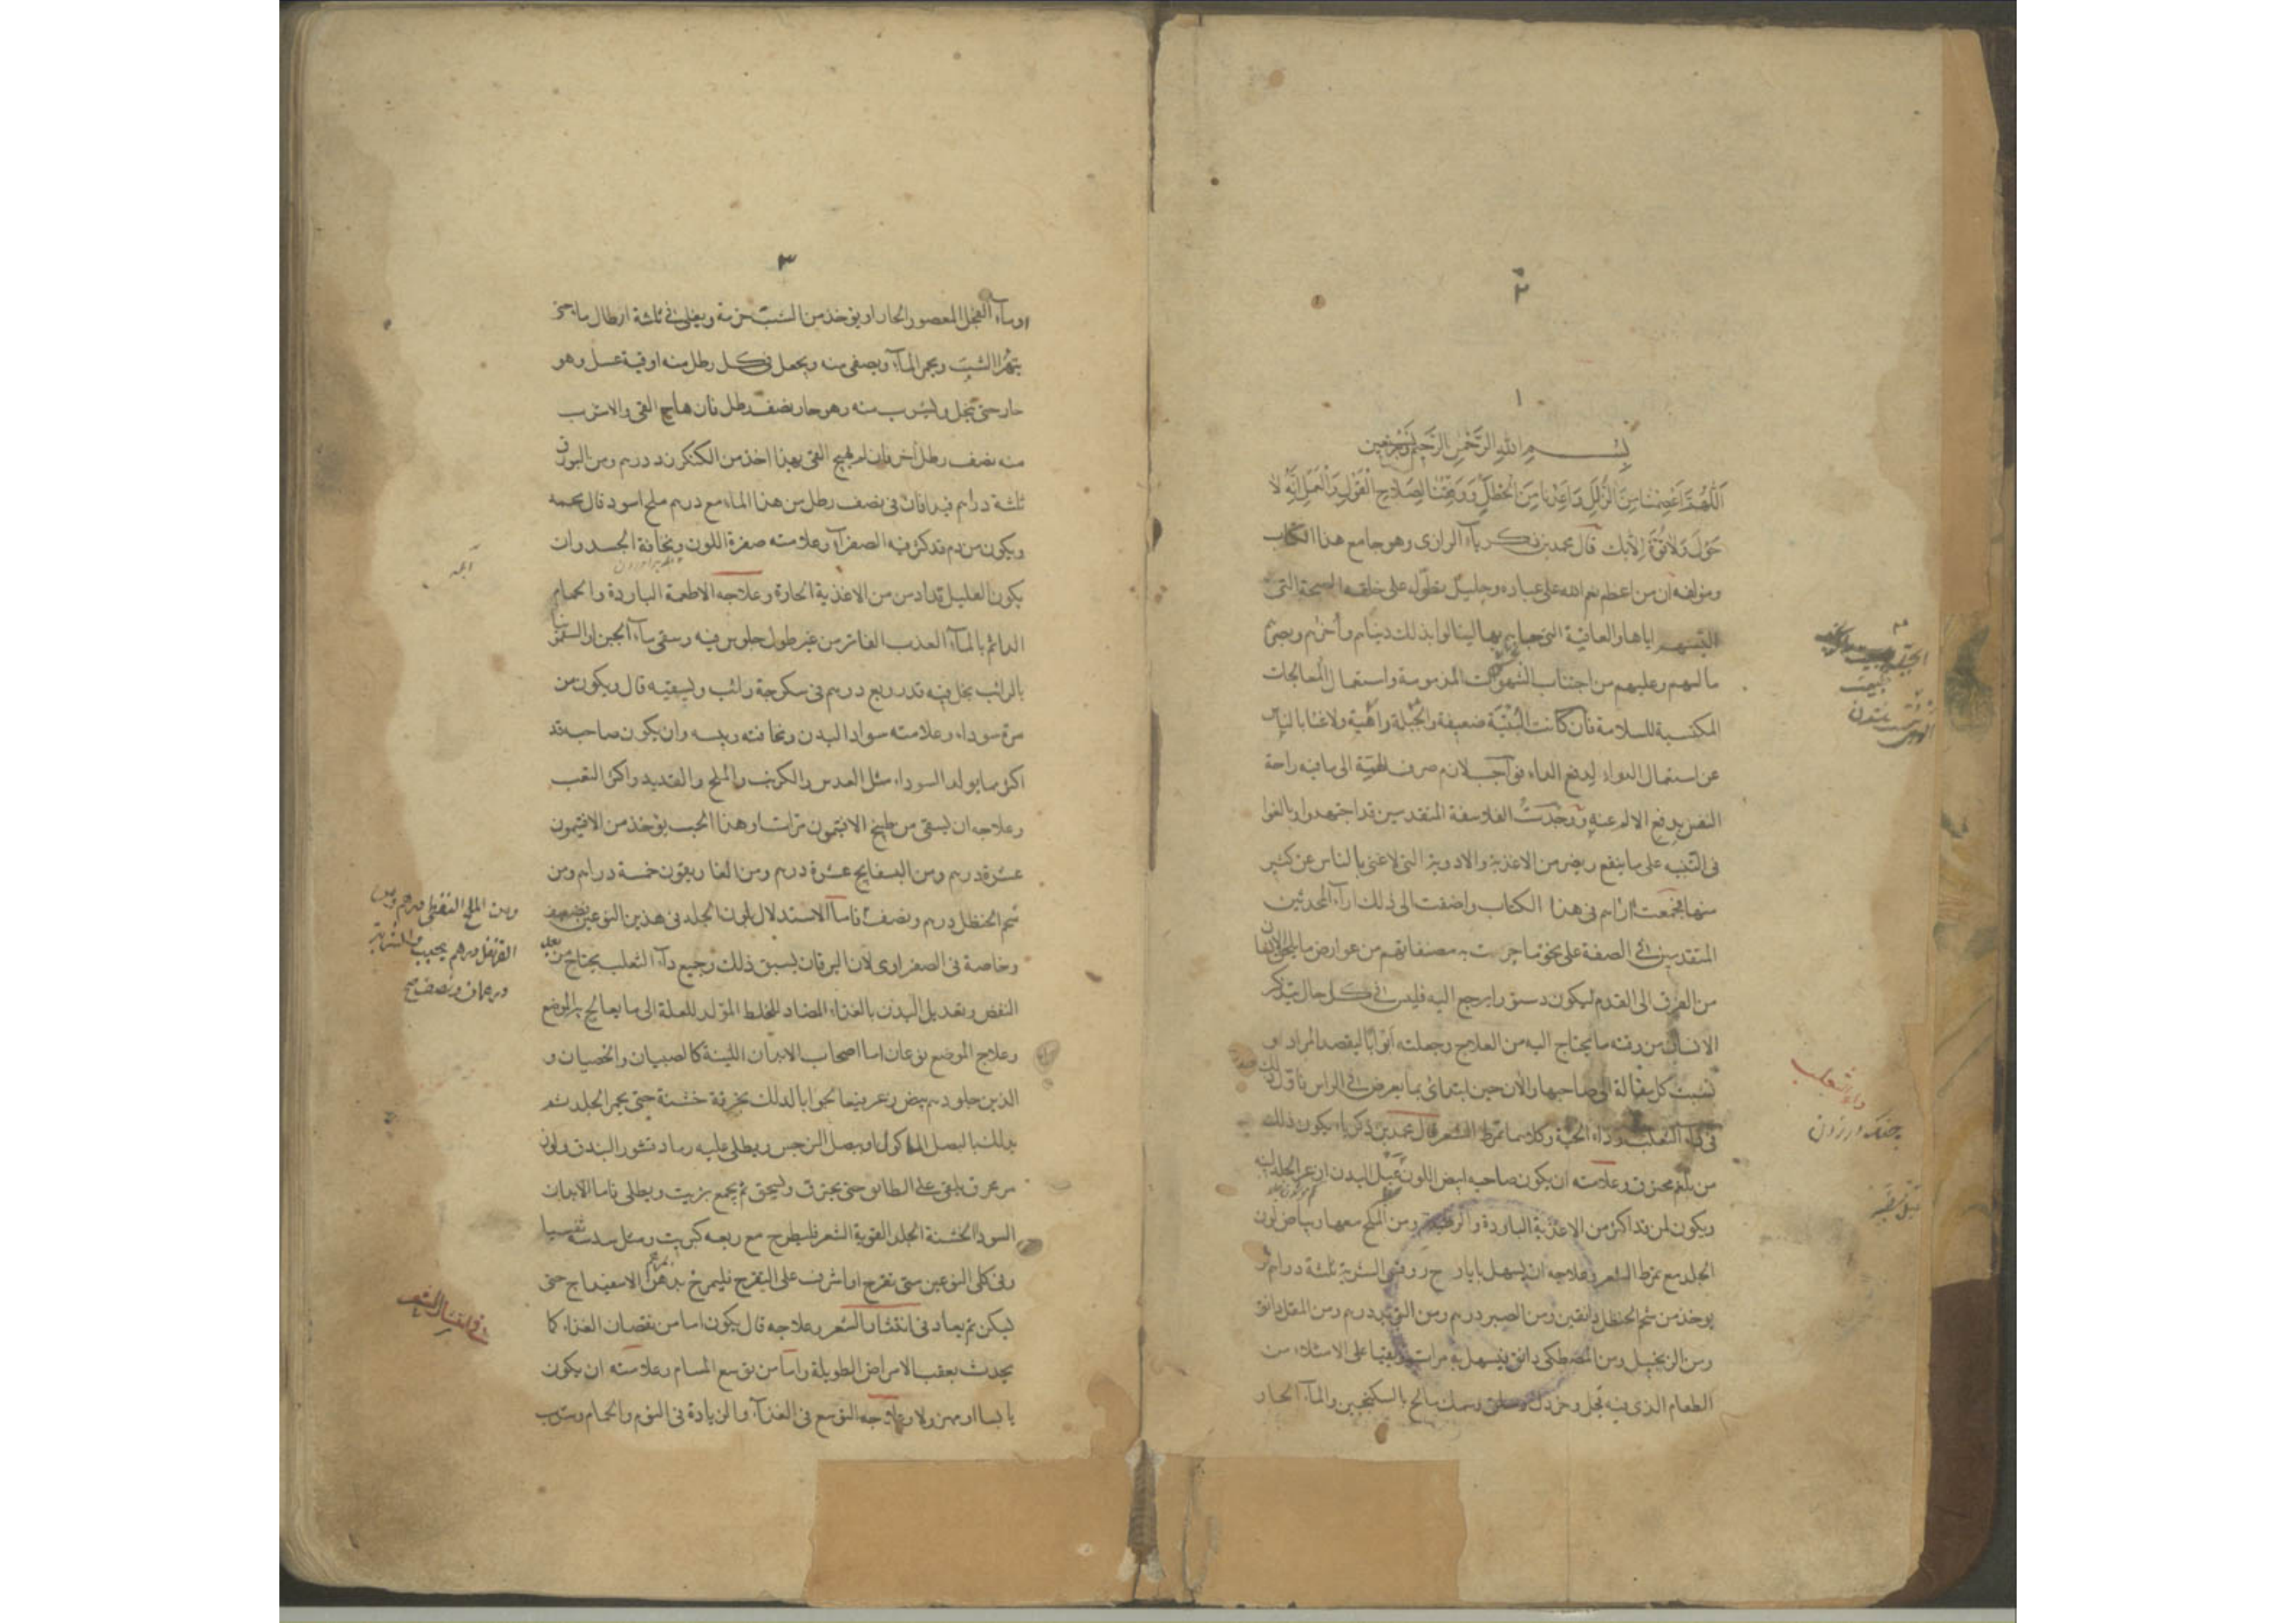 ٢
١
بسم الله الرحمن الرحيم
اللهم اعصمنا من الزلل واعذنا من الخطل ووفقنا لصلاح القول والعمل انه لا
حول ولا قوة الا بك قال محمد بن زكرياء الرازى وهو جامع هذا الكتاب
ومؤلفه ان من اعظم نعم الله على عباده وجليل تطوله على خلقه الصحة التى
البسهم اياها والعافية التى حباهم بها لينالوا بذلك دنياهم وأخراهم وبصرهم
مالهم وعليهم من اجتناب الشهوات المذمومة واستعمال المعالجات
المكتسبة للسلامة فان كانت البنية ضعيفة والجبلة واهية ولا غنا بالناس
عن استعمال الدواء لدفع الداء صرف الهمة الى ما فيه راحة
النفس بدفع الالم عنه ووجدت الفلاسفة المتقدمين قد اجتهدوا وبالغوا
فى التنبيه على ما ينفع ويضر من الاغذية والادوية التى لا غنى بالناس عن كثير
منها فجمعت اراهم فى هذا الكتاب واضفت الى ذلك اراء المحدثين
المتقدمين فى الصفة على نحو ما جرت به مصنفاتهم من عوارض ما يلحق الانسان
من القرن الى القدم ليكون دستورا يرجع اليه فليس فى كل حال يتذكر
الانسان من وقته ما يحتاج اليه من العلاج وجعلته ابوابا ليقصد المراد و
نسبت كل مقالة الى صاحبها والان حين ابتدائى بما يعرض فى الراس فاقول
فى داء الثعلب وداء الحية وكلاهما تمرط الشعر قال محمد بن زكرياء يكون ذلك
من بلغم محترق وعلامته ان يكون صاحبه ابيض اللون عبل البدن
ويكون لمن قد اكثر من الاغذية الباردة والرطبة ومن الملح معها وبياض لون
الجلد مع تمرط الشعر وعلاجه ان يسهل بايارج روفس الشربة ثلثة دراهم او
يوخذ من شحم الحنظل دانقين ومن الصبر درهم ومن التربد درهم ومن المقل دانق
ومن الزنجبيل ومن المصطكى دانق يسهل به مرات ويتقيا على الامتلاء من
الطعام الذى فيه فجل وخردل وسلق وسمك مالح بالسكنجبين والماء الحار
داء الثعلب
٣
وماء الفجل المعصور الحار او يوخذ من الشبت حزمة ويغلى فى ثلثة ارطال ماء حتى
يتهرا الشبت ويحمر الماء ويصفى منه ويجعل فى كل رطل منه اوقية عسل وهو
حار حتى ينحل وليشرب منه وهو حار نصف رطل فان هاج القى والا شرب
منه نصف رطل اخر فان لم يهيج القى بهذا اخذ من الكنكرزد درهم ومن البورق
ثلثة دراهم فيدافان فى نصف رطل من هذا الماء مع درهم ملح اسود قال محمد
ويكون من دم قد كثر فيه الصفراء وعلامته صفرة اللون ونحافة الجسد وان
يكون العليل قد ادمن من الاغذية الحارة وعلاجه الاطعمة الباردة والحمام
الدائم بالماء العذب الفاتر من غير طول جلوس فيه وسقى ماء الجبن او السقمونيا
بالرائب يداف فيه قدر ربع درهم فى سكرجة رائب ويسقيه قال ويكون من
مرة سوداء وعلامته سواد البدن ونحافته ويبسه وان يكون صاحبه قد
اكثر مما يولد السوداء مثل العدس والكرنب والملح والقديد واكثر التعب
وعلاجه ان يسقى من طبيخ الافتيمون مرات او هذا الحب يوخذ من الافتيمون
عشرة درهم ومن البسفايج عشرة درهم ومن الغاريقون خمسة دراهم ومن
شحم الحنظل درهم ونصف فاما الاستدلال بلون الجلد فى هذين النوعين فضعيف
وخاصة فى الصفراوى لان اليرقان يسبق ذلك وجميع داء الثعلب يحتاج من بعد
النفض وتعديل البدن بالغذاء المضاد للخلط المولد للعلة الى ما يعالج به الموضع
وعلاج الموضع نوعان اما اصحاب الابدان اللينة كالصبيان والخصيان و
الذين جلودهم بيض زعر فيعالجوا بالدلك بخرقة خشنة حتى يحمر الجلد ثم
يدلك بالبصل الماكول او بصل النرجس ويطلى عليه رماد قشور البندق
يلقى على الطابق حتى يحترق ويسحق ثم يجمع بزيت ويطلى فاما الابدان
السود الخشنة الجلد القوية الشعر فليطرح مع ربعه كبريت ومثل سدسه ثفسيا
وفى كلى النوعين متى تقرح او اشرف على التقرح فليمرخ بدهن الاسفيداج حتى
يسكن ثم يعاد فى انتثار الشعر وعلاجه قال يكون اما من نقصان الغذاء كما
يحدث بعقب الامراض الطويلة واما من توسع المسام وعلامته ان يكون
يابسا او مهزولا وعلاجه التوسع فى الغذاء والزيادة فى النوم والحمام وشرب
ومن الملح النفطى درهم ومن
القرنفل درهم يحبب الشربة
درهمان ونصف صح
فى انتثار الشعر